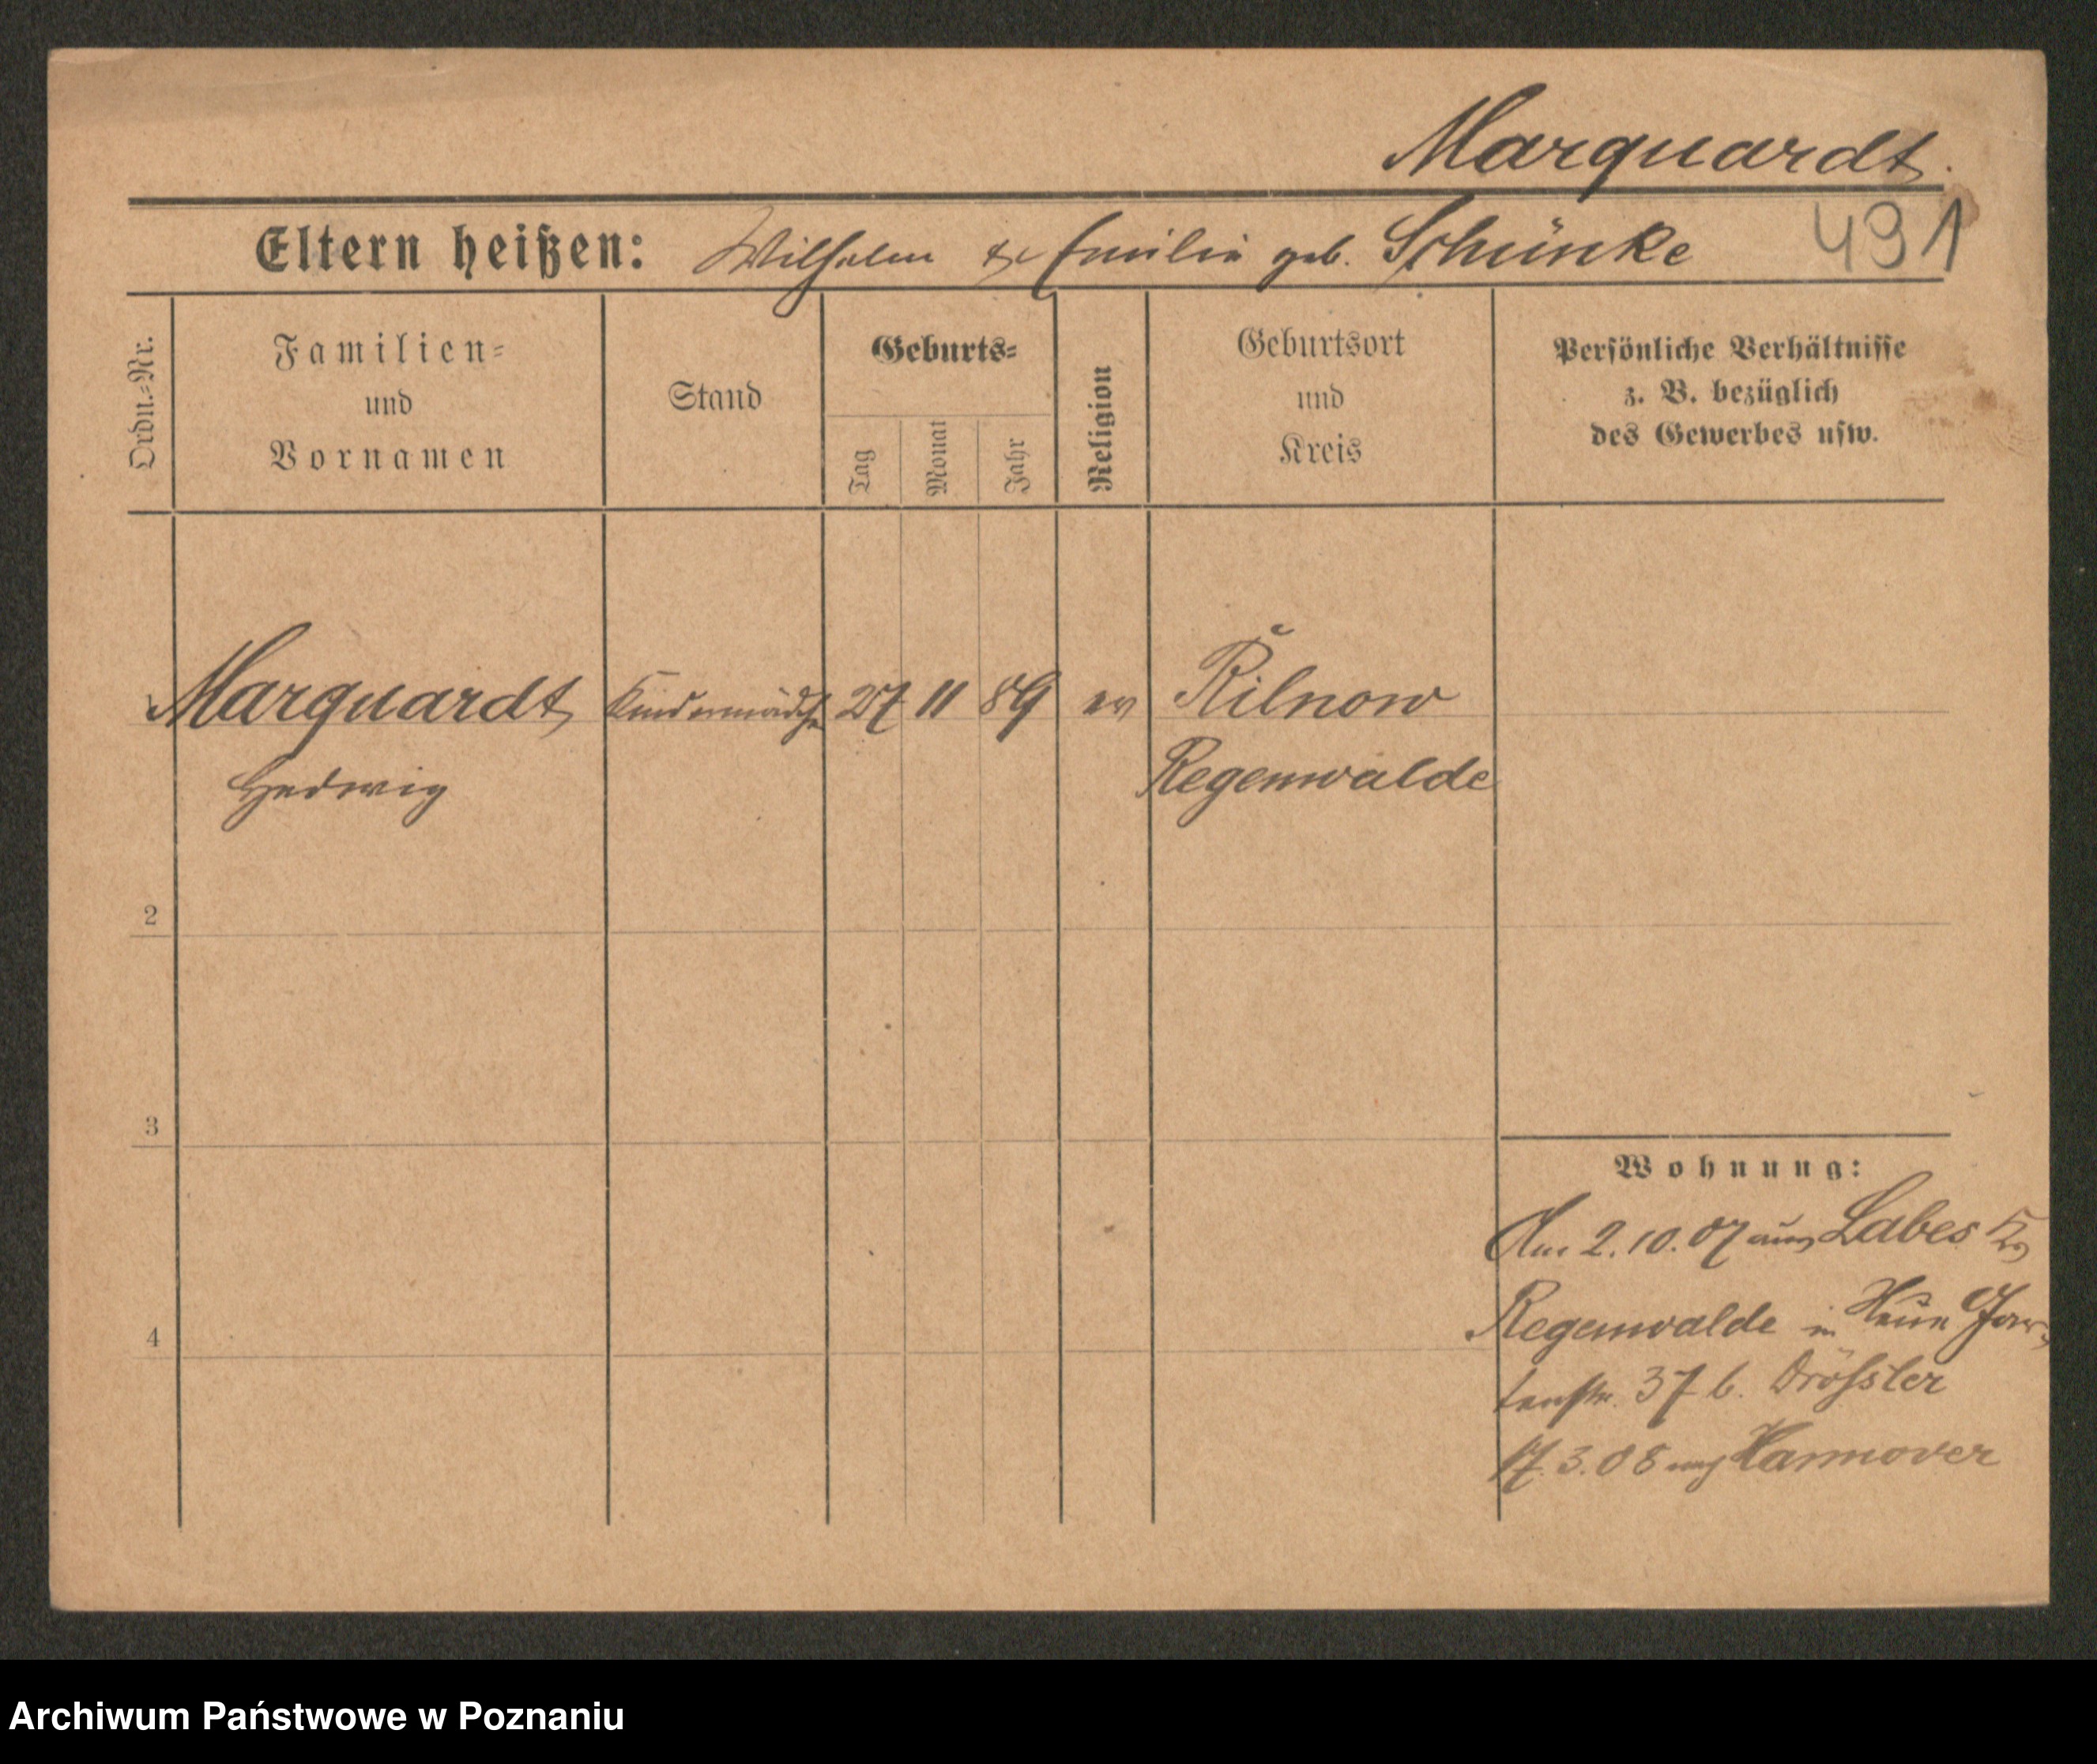 Marquardt.
Eltern heißen: Wilhelm & Emilie geb. Schünke 491
Ordn.-Nr.
Familien-
und
Vornamen
Stand
Geburts-
Tag
Monat
Jahr
Religion
Geburtsort
und
Kreis
Persönliche Verhältnisse
z. B. bezüglich
des Gewerbes usw.
Marquardt Kindermädch. 27 11 89 ev
Hedwig Regenwalde
2
3
4
Wohnung:
Am 2.10.07 aus Labes Kr
Regenwalde in Neue Gar-
tenstr. 37 b. Drößler
17.3.08 nach Hannover
Archiwum Państwowe w Poznaniu